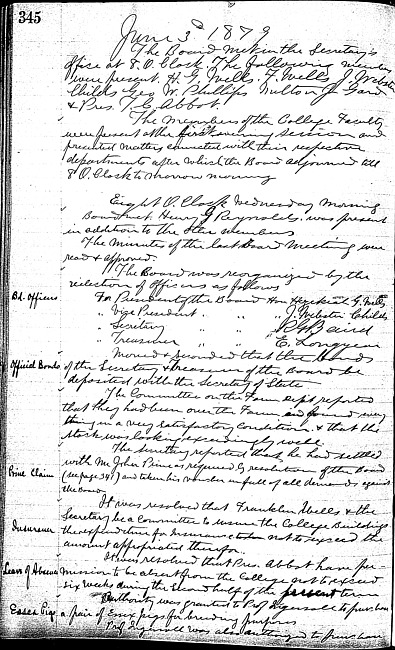 345
June 3d 1879
The Board Met in the Secretary's
office at 8 O.Clock. The following members
were present. H. G. Wells. F. Wells J. Webster
Childs Geo W. Phillips Milton J. Gard
& Pres. T. C. Abbot.
The Members of the College Faculty
were present at the first evening session and
presented matters connected with their respective
departments after which the Board adjourned till
8 O.Clock to morrow morning
Eight O.Clock Wednesday Morning
Board met. Henry G Reynolds. was present
in addition to the other members
The Minutes of the last Board Meeting were
read & approved.
The Board was reorganized by the
reelection of Officers as follows
Bd. Officers For President of the Board Hon Hezekiah G. Wells
" Vice President " " J. Webster Childs
" Secretary " " R G Baird
" Treasurer " " E. Longyear
Moved & Seconded that the Bonds
Official Bonds of the Secretary & Treasurer of the Board be
deposited with the Secretary of State
The Committee on the Farm Dept reported
that they had been over the Farm and found every
thing in a very satisfactory condition & that the
stock was looking exceedingly well.
The Secretary reported that he had settled
Prine Claim with Mr John Prine as required by resolution of the Board
(see page 341) and taken his voucher in full of all demands against
the Board
It was resolved that Franklin Wells & the
Insurance Secretary be a Committee to insure the College Buildings
the expenditure for Insurance to not to exceed the
amount appropriated therefor.
It was resolved that Pres. Abbot have per-
Leave of Absence mission to be absent from the College not to exceed
six weeks during the second half of the present term
Authority was granted to Prof Ingersoll to purchase
Essex Pigs a pair of Essex pigs for breeding purposes
Prof Ingersoll was also authorized to purchase